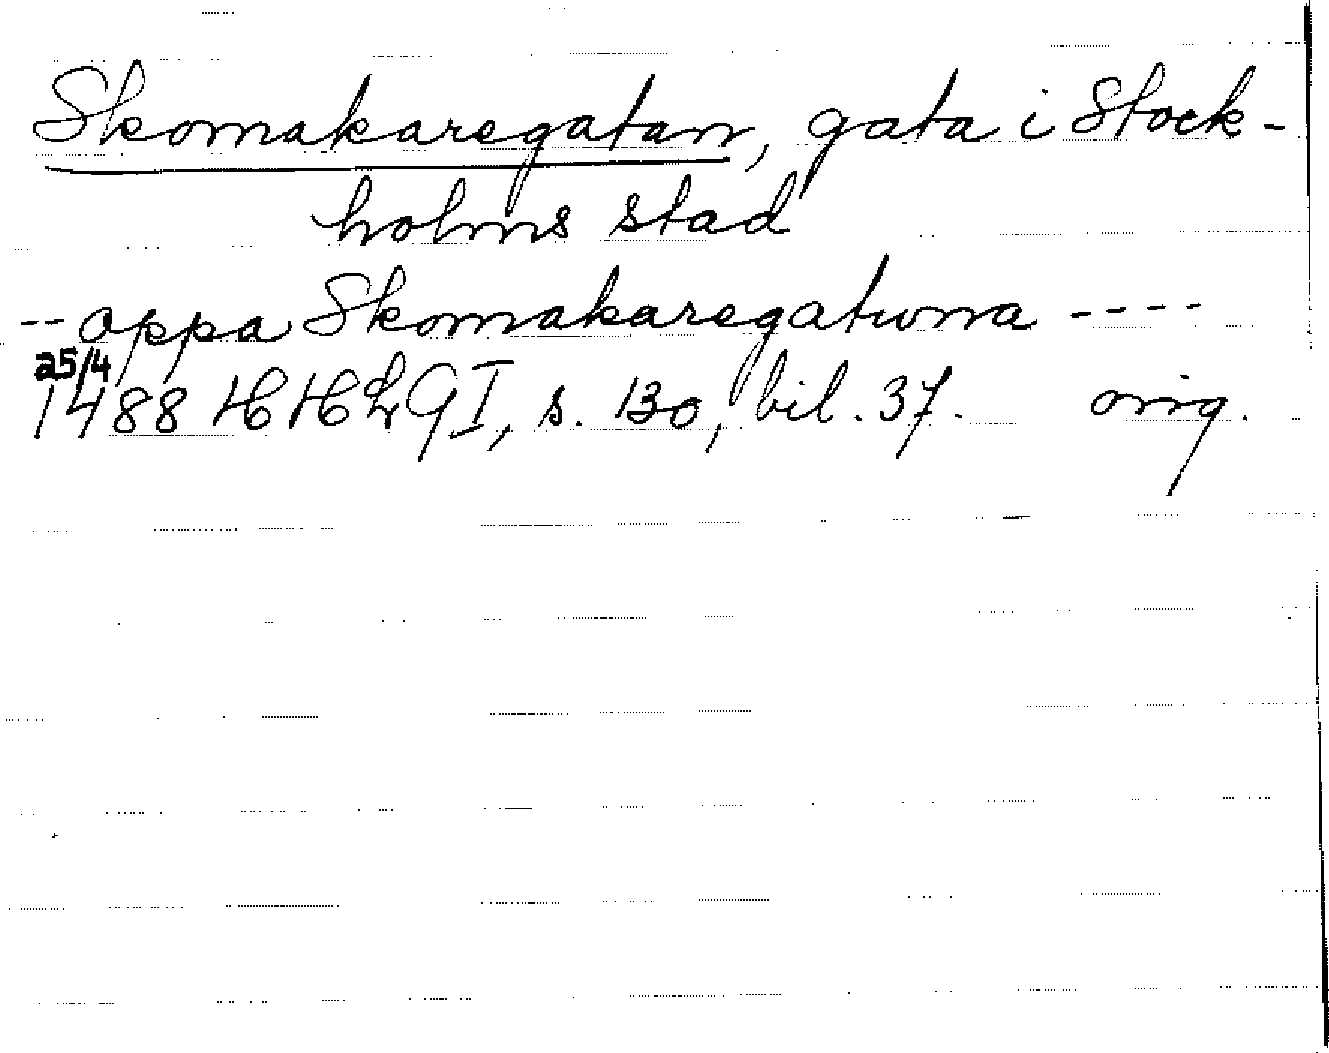 Skomakaregatan, gata i Stock-
holms stad
-- oppa Skomakaregatwna ----
25/4
1488 HHLG I, s. 130, bil. 37. orig.